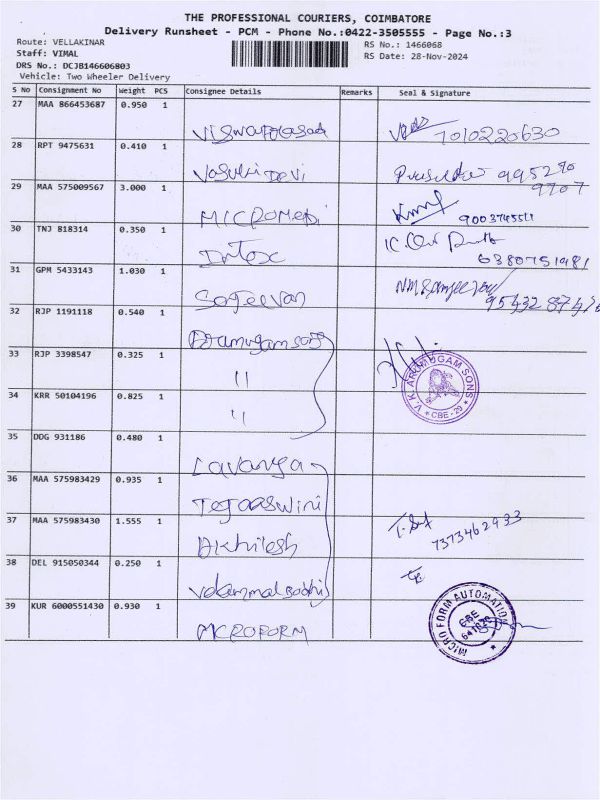 THE PROFESSIONAL COURIERS, COIMBATORE
Delivery Runsheet - PCM - Phone No.:0422-3505555 - Page No.:3
Route: VELLAKINAR
RS No.: 1466068
Staff: VIMAL
RS Date: 28-Nov-2024
DRS No.: DCJB146606803
Vehicle: Two Wheeler Delivery
S No Consignment No Weight PCS Consignee Details Remarks Seal & Signature
27 MAA 866453687 0.950 1
Viswaprasad 7010220630
28 RPT 9475631 0.410 1
Vasuki Devi 995290
9707
29 MAA 575009567 3.000 1
MICROMEDI 9003745511
30 TNJ 818314 0.350 1
Intox
6380751981
31 GPM 5433143 1.030 1
Sanjeevan NM Sanjeevan
32 RJP 1191118 0.540 1
Arumugam sons
33 RJP 3398547 0.325 1
"
V.K. ARUMUGAM SONS
CBE - 29
34 KRR 50104196 0.825 1
"
35 DDG 931186 0.480 1
Lavanya
36 MAA 575983429 0.935 1
Tejaaswini
37 MAA 575983430 1.555 1
7373462933
Akhilesh
38 DEL 915050344 0.250 1
Velammal Bodhi
39 KUR 6000551430 0.930 1
MICROFORM
MICRO FORM AUTOMATION
CBE